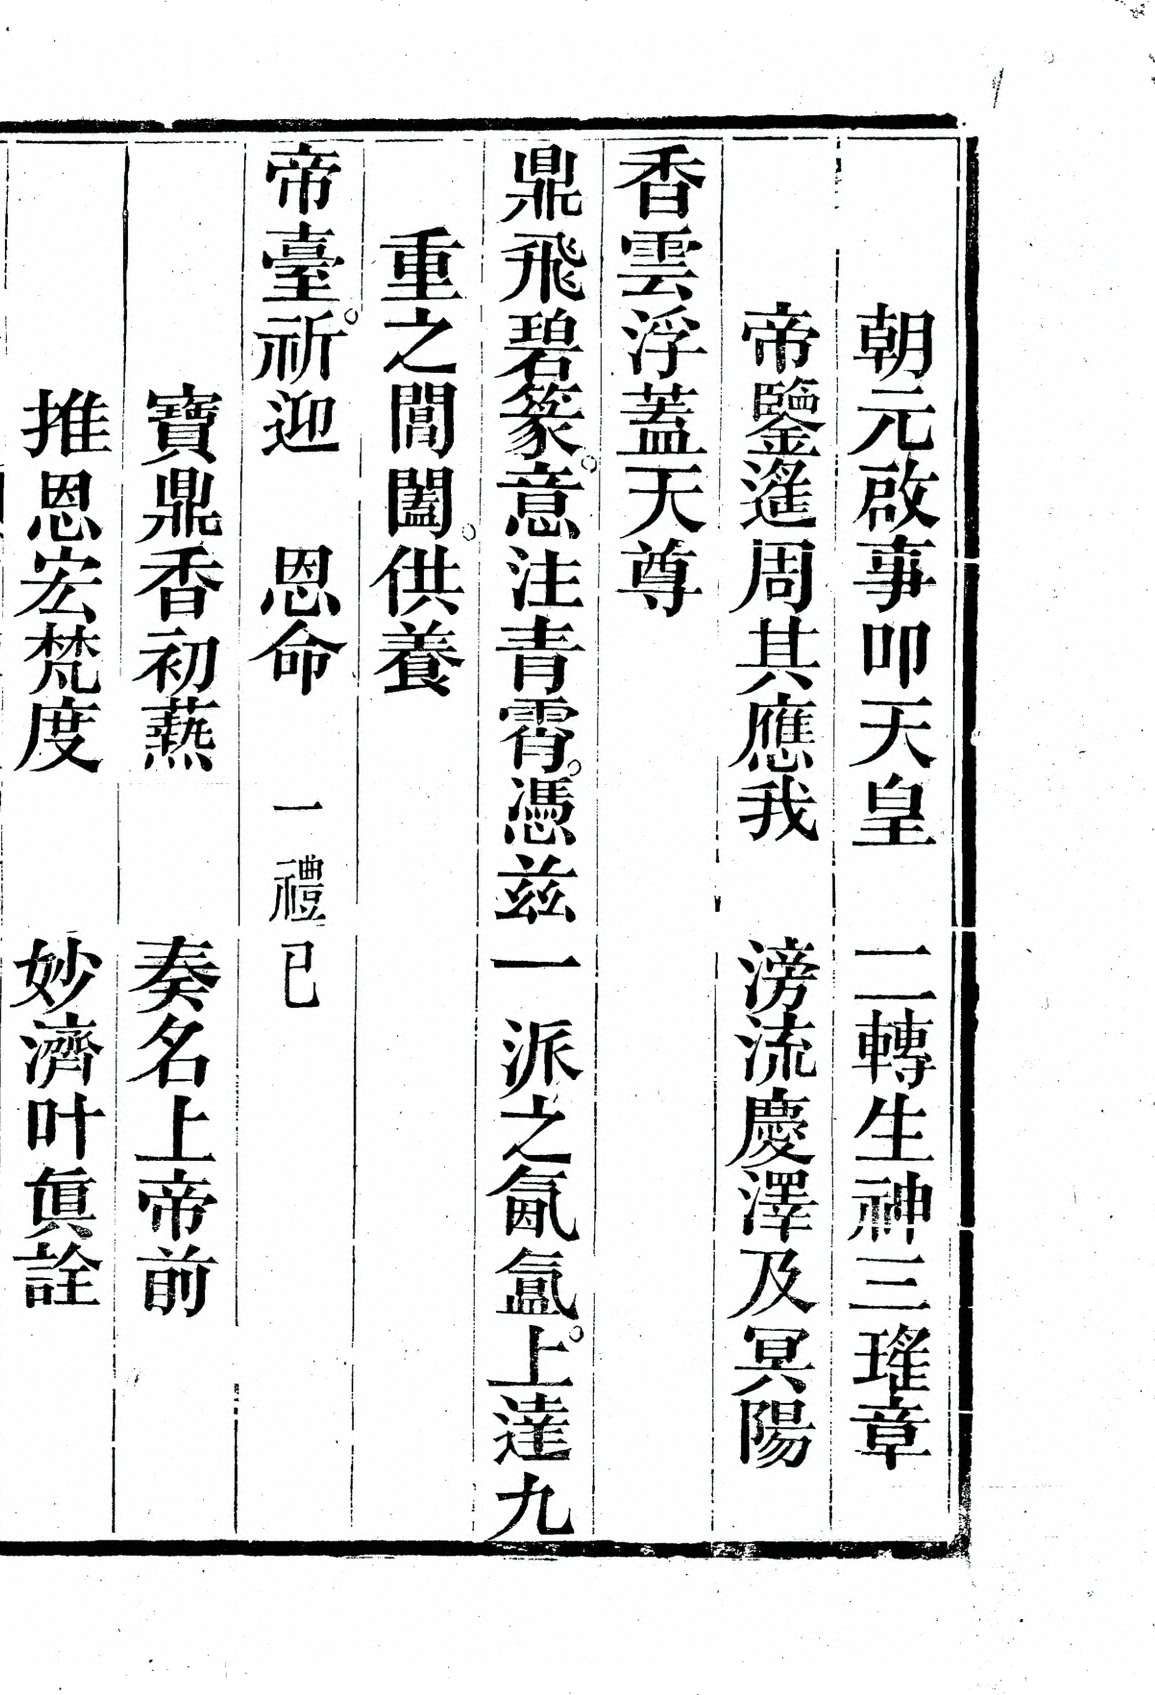 朝元啟事叩天皇　二轉生神三瑤章
帝鑒遙周其應我　滂流慶澤及冥陽
香雲浮蓋天尊
鼎飛碧篆。意注青霄。憑茲一派之氤氳。上達九
重之閶闔。供養
帝臺。祈迎　恩命　一禮已
寶鼎香初爇　奏名上帝前
推恩宏梵度　妙濟叶眞詮